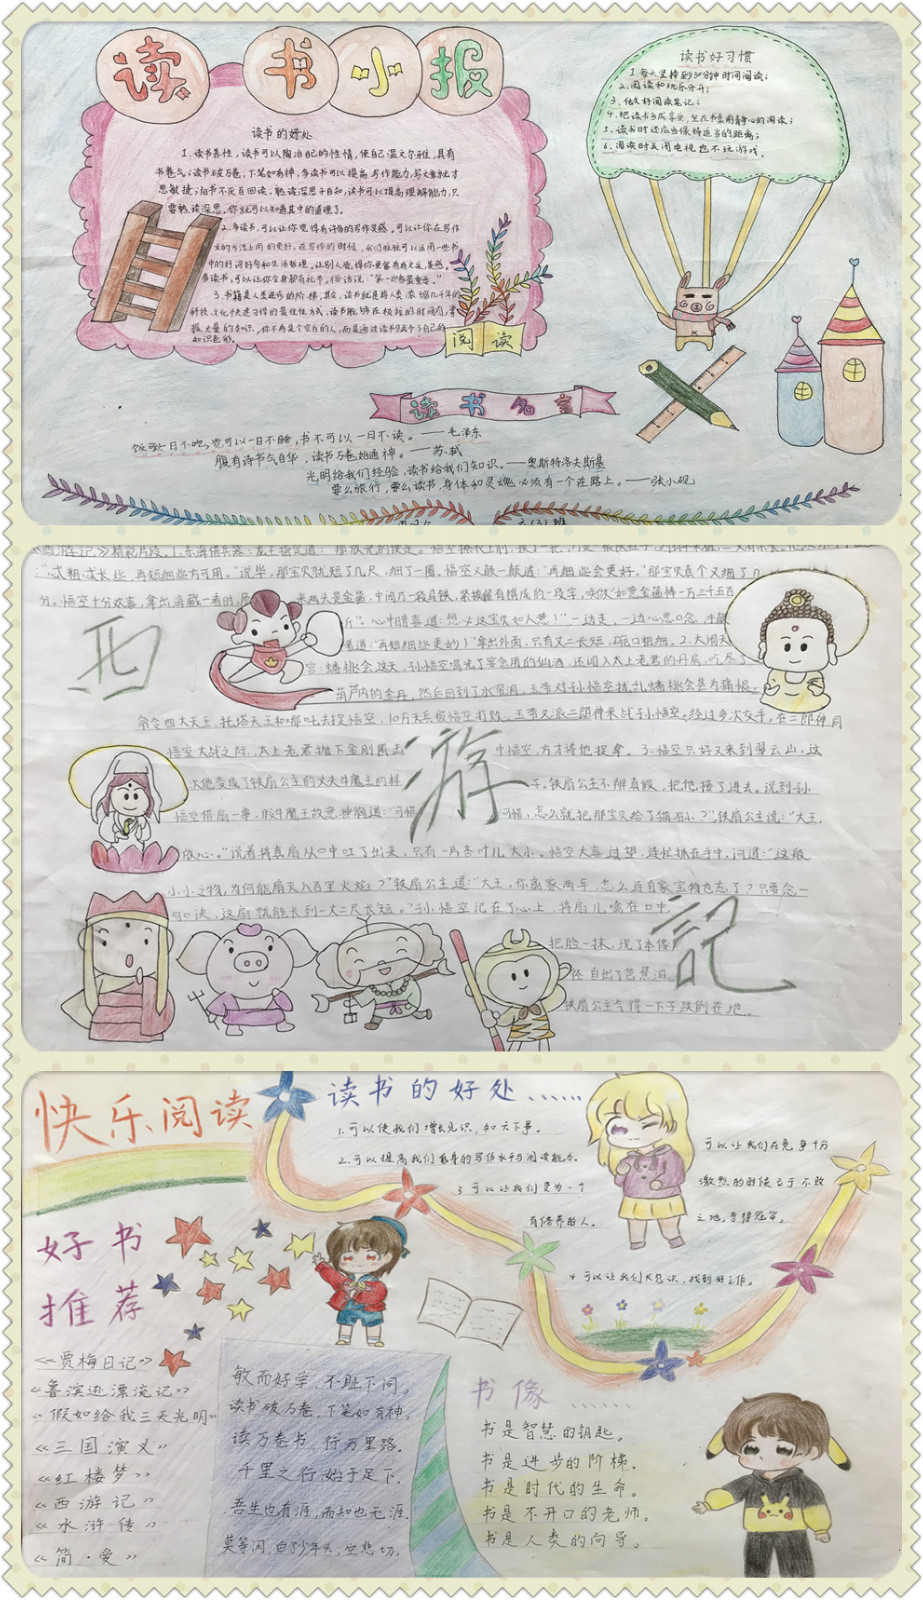 读书小报
读书的好处
1.读书养性，读书可以陶冶自己的性情，使自己温文尔雅，具有
书卷气；读书破万卷，下笔如有神，多读书可以提高写作能力，写文章就才
思敏捷；旧书不厌百回读，熟读深思子自知，读书可以提高理解能力，只
要熟读深思，你就可以知道其中的道理了。
2.多读书，可以让你觉得有许多的写作灵感。可以让你在写作
文的方法上用的更好。在写作的时候，我们往往可以运用一些书
中的好词好句和生活哲理。让别人觉得你更富有文采，美感。
多读书，可以让你全身都有礼节。俗话说：“第一印象最重要。”
3.书籍是人类进步的阶梯，
阅读
读书好习惯
1.每天坚持到30分钟时间阅读；
2.阅读和玩乐分开；
3.做好阅读笔记；
4.把读书当成享受，坐在书桌前静心的阅读；
5.读书时还应当保持适当的距离；
6.阅读时关闭电视也不玩游戏。
读书名言
饭可以一日不吃，觉可以一日不睡，书不可以一日不读。——毛泽东
腹有诗书气自华，读书万卷始通神。——苏轼
光明给我们经验，读书给我们知识。——奥斯特洛夫斯基
要么旅行，要么读书，身体和灵魂必须有一个在路上。——张小砚
西游記
再短细些方可用。”说毕，那宝贝就短了几尺，细了一圈。悟空又颠一颠道：“再细些会更好。”那宝贝真个又细了几
分。悟空十分欢喜，拿出海藏一看时，
来两头是金箍，中间乃一段乌铁，紧挨箍有镌成的一段字，唤做“如意金箍棒一万三千五百
斤”。心中暗喜道：想必这宝贝如人意！”一边走，一边心思口念，手颠
着道：“再短细些更妙！”拿出外面，只有丈二长短，碗口粗细。2.大闹天
宫：蟠桃会这天，孙悟空喝光了宴会用的仙酒，还闯入太上老君的丹房，吃尽了
葫芦内的金丹，然后回到了水帘洞。玉帝对孙悟空扰乱蟠桃会甚为痛恨，
命令四大天王，托塔天王和哪吒去捉悟空，10万天兵被悟空打败。玉帝又派二郎神来战孙悟空。经过多次交手，在二郎神同
悟空大战之际，太上老君抛下金刚圈击中悟空，方才将他捉拿。3.悟空只好又来到翠云山，这
次他变成了铁扇公主的丈夫牛魔王的样子，铁扇公主不解真假，把他接了进去。说到孙
悟空借扇一事，假牛魔王故意捶胸道：“可惜可惜，怎么就把那宝贝给了猢狲？”铁扇公主说：“大王，
放心。”说着将真扇从口中吐了出来，只有一片杏叶儿大小。悟空大喜过望，连忙抓在手中，问道：“这般
小小之物，为何能扇灭八百里火焰？”铁扇公主道：“大王，你离家两年，怎么连自家宝物也忘了？只要念一
句口诀，这扇就能长到一丈二尺长短。”孙悟空记在了心上，将扇儿噙在口中，
把脸一抹，现了本像，
径自出了芭蕉洞。
铁扇公主气得一下子跌倒在地。
快乐阅读
读书的好处......
1.可以使我们增长见识，知天下事。
2.可以提高我们自身的写作水平与阅读能力。
3.可以让我们变为一个
有修养的人。
可以让我们在竞争十分
激烈的时候立于不败
之地，夺得冠军。
4.可以让我们长见识，找到好工作。
好书
推荐
《贾梅日记》
《鲁滨逊漂流记》
《假如给我三天光明》
《三国演义》
《红楼梦》
《西游记》
《水浒传》
《简·爱》
敏而好学，不耻下问。
读书破万卷，下笔如有神。
读万卷书，行万里路。
千里之行，始于足下。
吾生也有涯，而知也无涯
莫等闲，白了少年头，空悲切。
书像......
书是智慧的钥匙。
书是进步的阶梯。
书是时代的生命。
书是不开口的老师。
书是人类的向导。